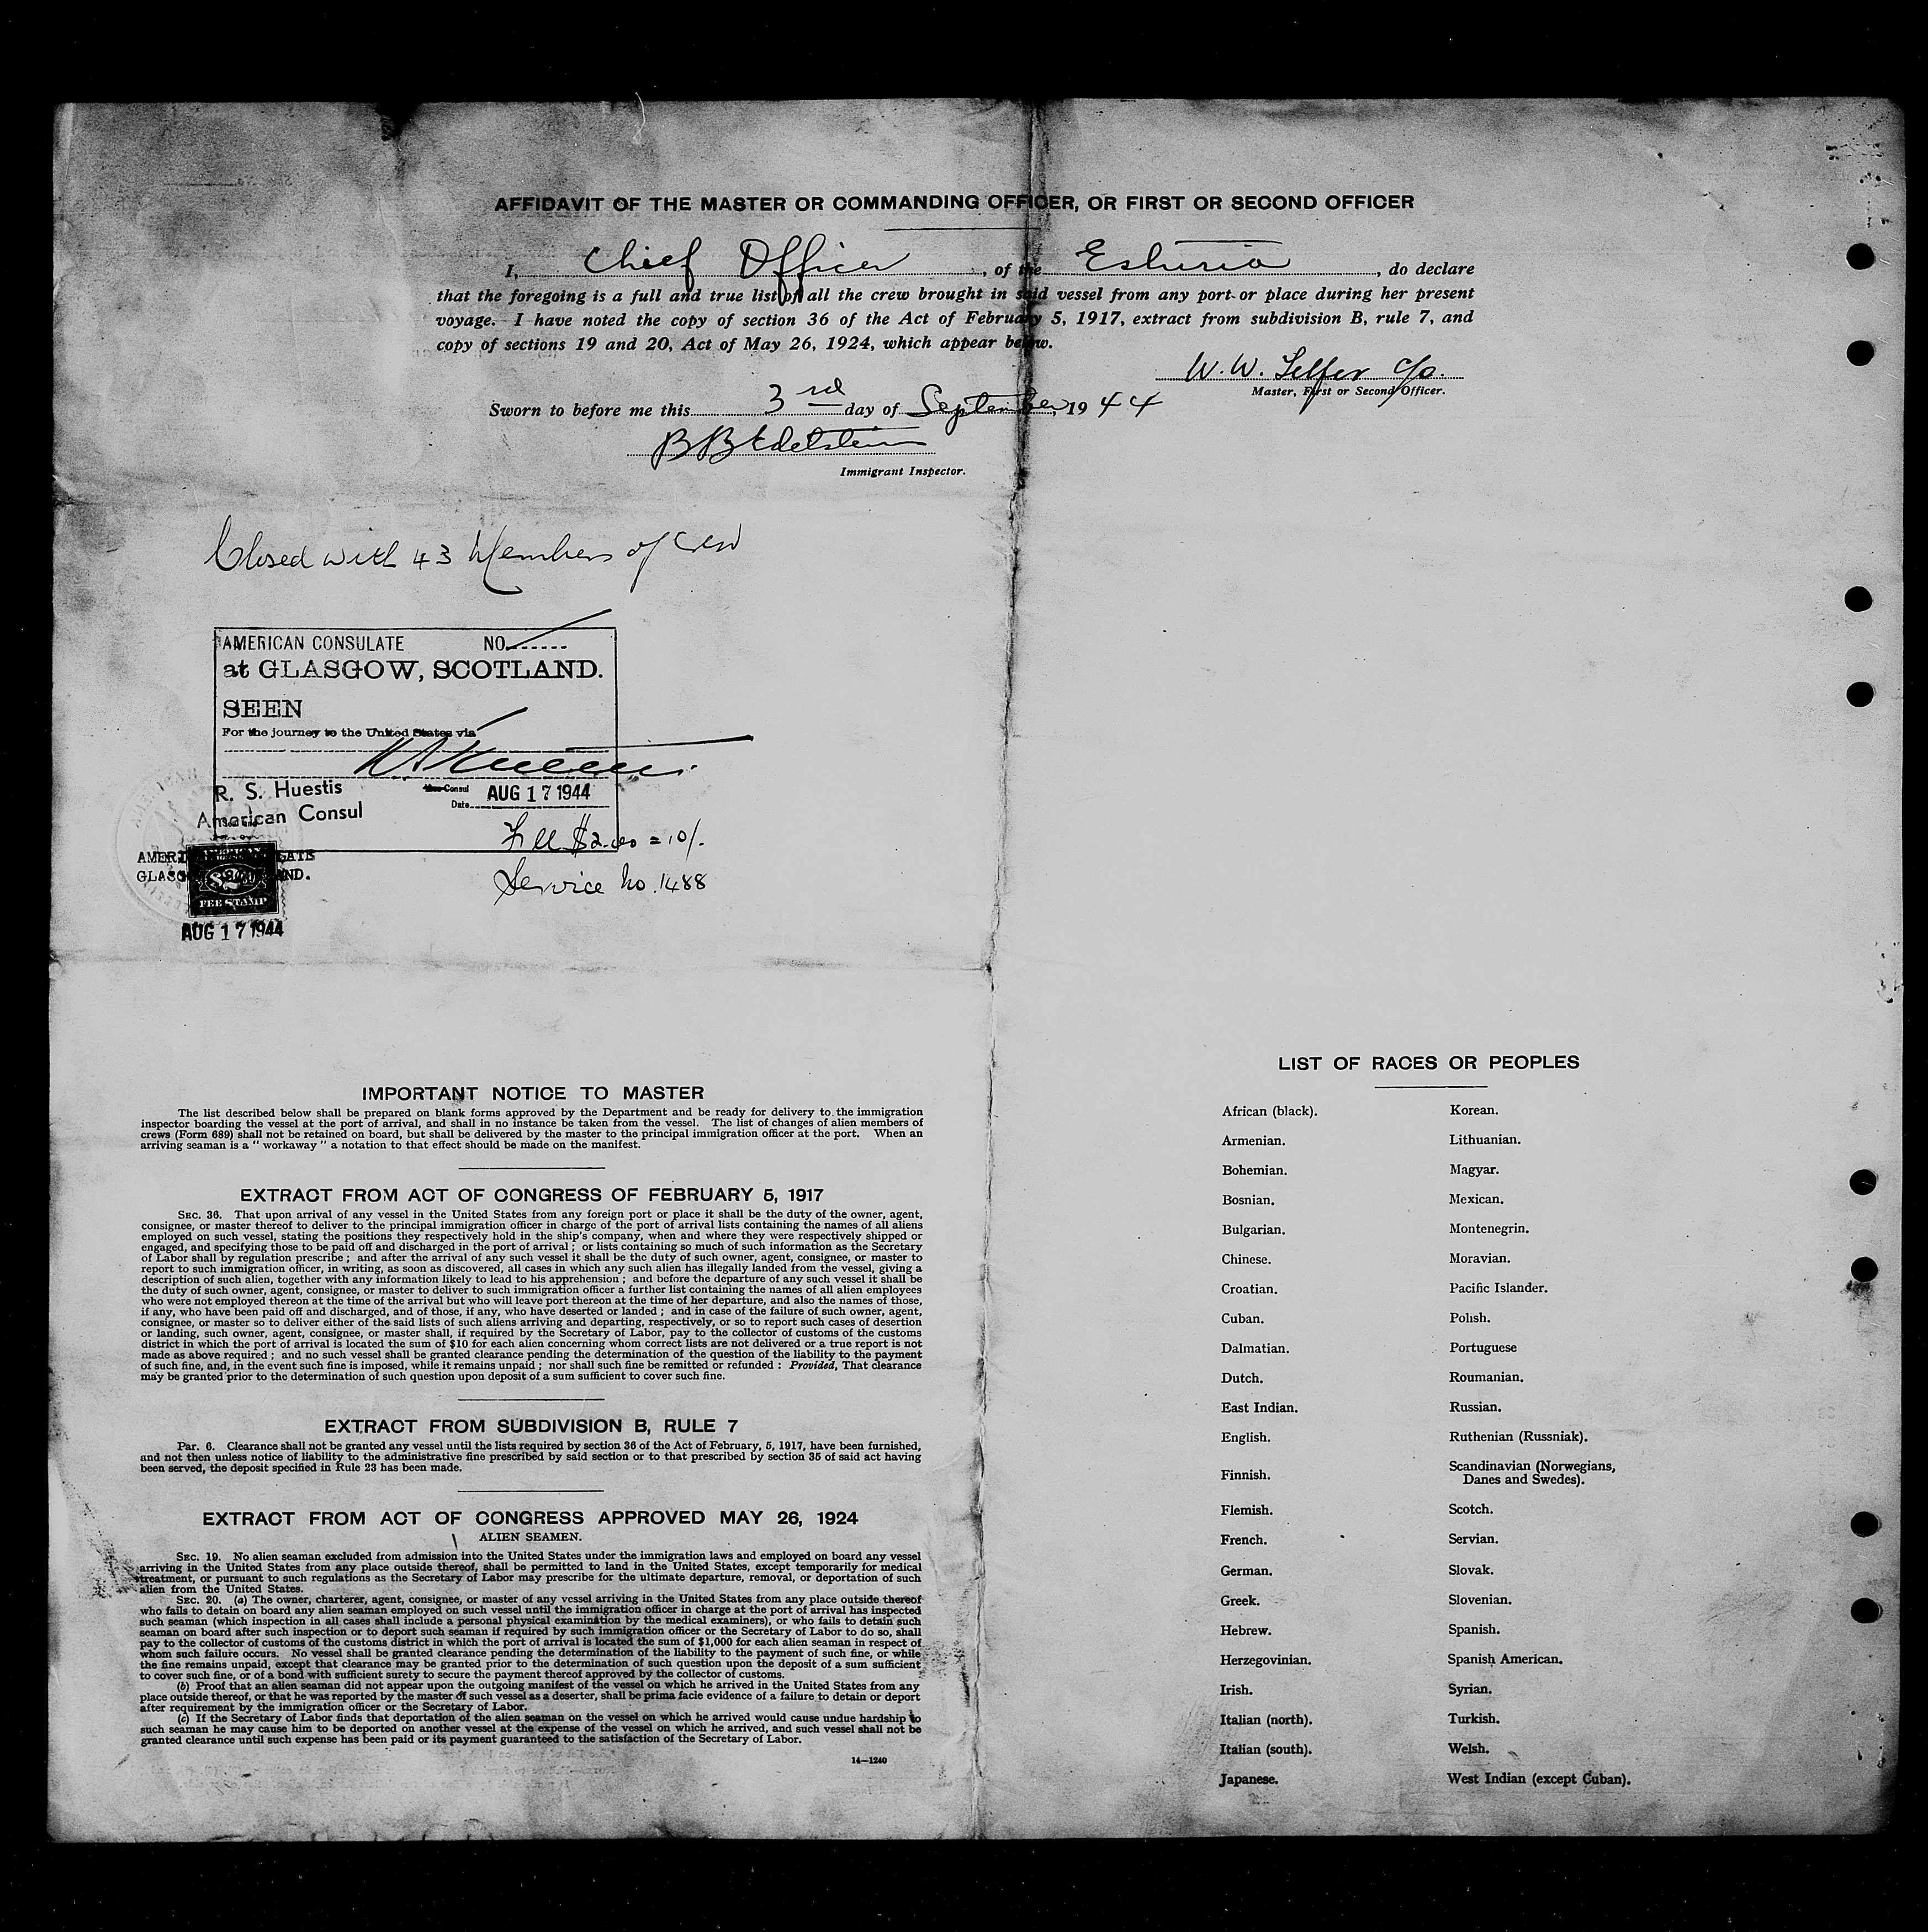 AFFIDAVIT OF THE MASTER OR COMMANDING OFFICER, OR FIRST OR SECOND OFFICER
I, Chief Officer, of the Esturia, do declare
that the foregoing is a full and true list of all the crew brought in said vessel from any port or place during her present
voyage. I have noted the copy of section 36 of the Act of February 5, 1917, extract from subdivision B, rule 7, and
copy of sections 19 and 20, Act of May 26, 1924, which appear below.
W. W. Telfer C/o.
Master, First or Second Officer.
Sworn to before me this 3rd day of September, 1944
B B Edelstein
Immigrant Inspector.
Closed with 43 Members of Crew
AMERICAN CONSULATE NO.
at GLASGOW, SCOTLAND.
SEEN
For the journey to the United States via
R. S. Huestis
American Consul
Vice Consul
Date AUG 17 1944
$2.00 = 10/.
Service No. 1488
AMERICAN CONSULATE
GLASGOW, SCOTLAND.
FEE STAMP
AUG 17 1944
IMPORTANT NOTICE TO MASTER
The list described below shall be prepared on blank forms approved by the Department and be ready for delivery to the immigration
inspector boarding the vessel at the port of arrival, and shall in no instance be taken from the vessel. The list of changes of alien members of
crews (Form 689) shall not be retained on board, but shall be delivered by the master to the principal immigration officer at the port. When an
arriving seaman is a " workaway " a notation to that effect should be made on the manifest.
EXTRACT FROM ACT OF CONGRESS OF FEBRUARY 5, 1917
SEC. 36. That upon arrival of any vessel in the United States from any foreign port or place it shall be the duty of the owner, agent,
consignee, or master thereof to deliver to the principal immigration officer in charge of the port of arrival lists containing the names of all aliens
employed on such vessel, stating the positions they respectively hold in the ship's company, when and where they were respectively shipped or
engaged, and specifying those to be paid off and discharged in the port of arrival ; or lists containing so much of such information as the Secretary
of Labor shall by regulation prescribe ; and after the arrival of any such vessel it shall be the duty of such owner, agent, consignee, or master to
report to such immigration officer, in writing, as soon as discovered, all cases in which any such alien has illegally landed from the vessel, giving a
description of such alien, together with any information likely to lead to his apprehension ; and before the departure of any such vessel it shall be
the duty of such owner, agent, consignee, or master to deliver to such immigration officer a further list containing the names of all alien employees
who were not employed thereon at the time of the arrival but who will leave port thereon at the time of her departure, and also the names of those,
if any, who have been paid off and discharged, and of those, if any, who have deserted or landed ; and in case of the failure of such owner, agent,
consignee, or master so to deliver either of the said lists of such aliens arriving and departing, respectively, or so to report such cases of desertion
or landing, such owner, agent, consignee, or master shall, if required by the Secretary of Labor, pay to the collector of customs of the customs
district in which the port of arrival is located the sum of $10 for each alien concerning whom correct lists are not delivered or a true report is not
made as above required ; and no such vessel shall be granted clearance pending the determination of the question of the liability to the payment
of such fine, and, in the event such fine is imposed, while it remains unpaid ; nor shall such fine be remitted or refunded : Provided, That clearance
may be granted prior to the determination of such question upon deposit of a sum sufficient to cover such fine.
EXTRACT FROM SUBDIVISION B, RULE 7
Par. 6. Clearance shall not be granted any vessel until the lists required by section 36 of the Act of February, 5, 1917, have been furnished,
and not then unless notice of liability to the administrative fine prescribed by said section or to that prescribed by section 35 of said act having
been served, the deposit specified in Rule 23 has been made.
EXTRACT FROM ACT OF CONGRESS APPROVED MAY 26, 1924
ALIEN SEAMEN.
SEC. 19. No alien seaman excluded from admission into the United States under the immigration laws and employed on board any vessel
arriving in the United States from any place outside thereof, shall be permitted to land in the United States, except temporarily for medical
treatment, or pursuant to such regulations as the Secretary of Labor may prescribe for the ultimate departure, removal, or deportation of such
alien from the United States.
SEC. 20. (a) The owner, charterer, agent, consignee, or master of any vessel arriving in the United States from any place outside thereof
who fails to detain on board any alien seaman employed on such vessel until the immigration officer in charge at the port of arrival has inspected
such seaman (which inspection in all cases shall include a personal physical examination by the medical examiners), or who fails to detain such
seaman on board after such inspection or to deport such seaman if required by such immigration officer or the Secretary of Labor to do so, shall
pay to the collector of customs of the customs district in which the port of arrival is located the sum of $1,000 for each alien seaman in respect of
whom such failure occurs. No vessel shall be granted clearance pending the determination of the liability to the payment of such fine, or while
the fine remains unpaid, except that clearance may be granted prior to the determination of such question upon the deposit of a sum sufficient
to cover such fine, or of a bond with sufficient surety to secure the payment thereof approved by the collector of customs.
(b) Proof that an alien seaman did not appear upon the outgoing manifest of the vessel on which he arrived in the United States from any
place outside thereof, or that he was reported by the master of such vessel as a deserter, shall be prima facie evidence of a failure to detain or deport
after requirement by the immigration officer or the Secretary of Labor.
(c) If the Secretary of Labor finds that deportation of the alien seaman on the vessel on which he arrived would cause undue hardship to
such seaman he may cause him to be deported on another vessel at the expense of the vessel on which he arrived, and such vessel shall not be
granted clearance until such expense has been paid or its payment guaranteed to the satisfaction of the Secretary of Labor.
14—1240
LIST OF RACES OR PEOPLES
African (black). Korean.
Armenian. Lithuanian.
Bohemian. Magyar.
Bosnian. Mexican.
Bulgarian. Montenegrin.
Chinese. Moravian.
Croatian. Pacific Islander.
Cuban. Polish.
Dalmatian. Portuguese
Dutch. Roumanian.
East Indian. Russian.
English. Ruthenian (Russniak).
Finnish. Scandinavian (Norwegians,
Danes and Swedes).
Flemish. Scotch.
French. Servian.
German. Slovak.
Greek. Slovenian.
Hebrew. Spanish.
Herzegovinian. Spanish American.
Irish. Syrian.
Italian (north). Turkish.
Italian (south). Welsh.
Japanese. West Indian (except Cuban).